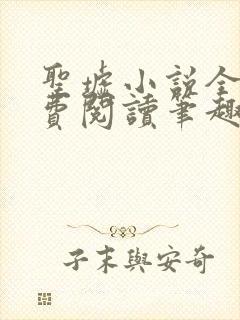 聖墟小說全
費閱讀筆趣
子末與安奇